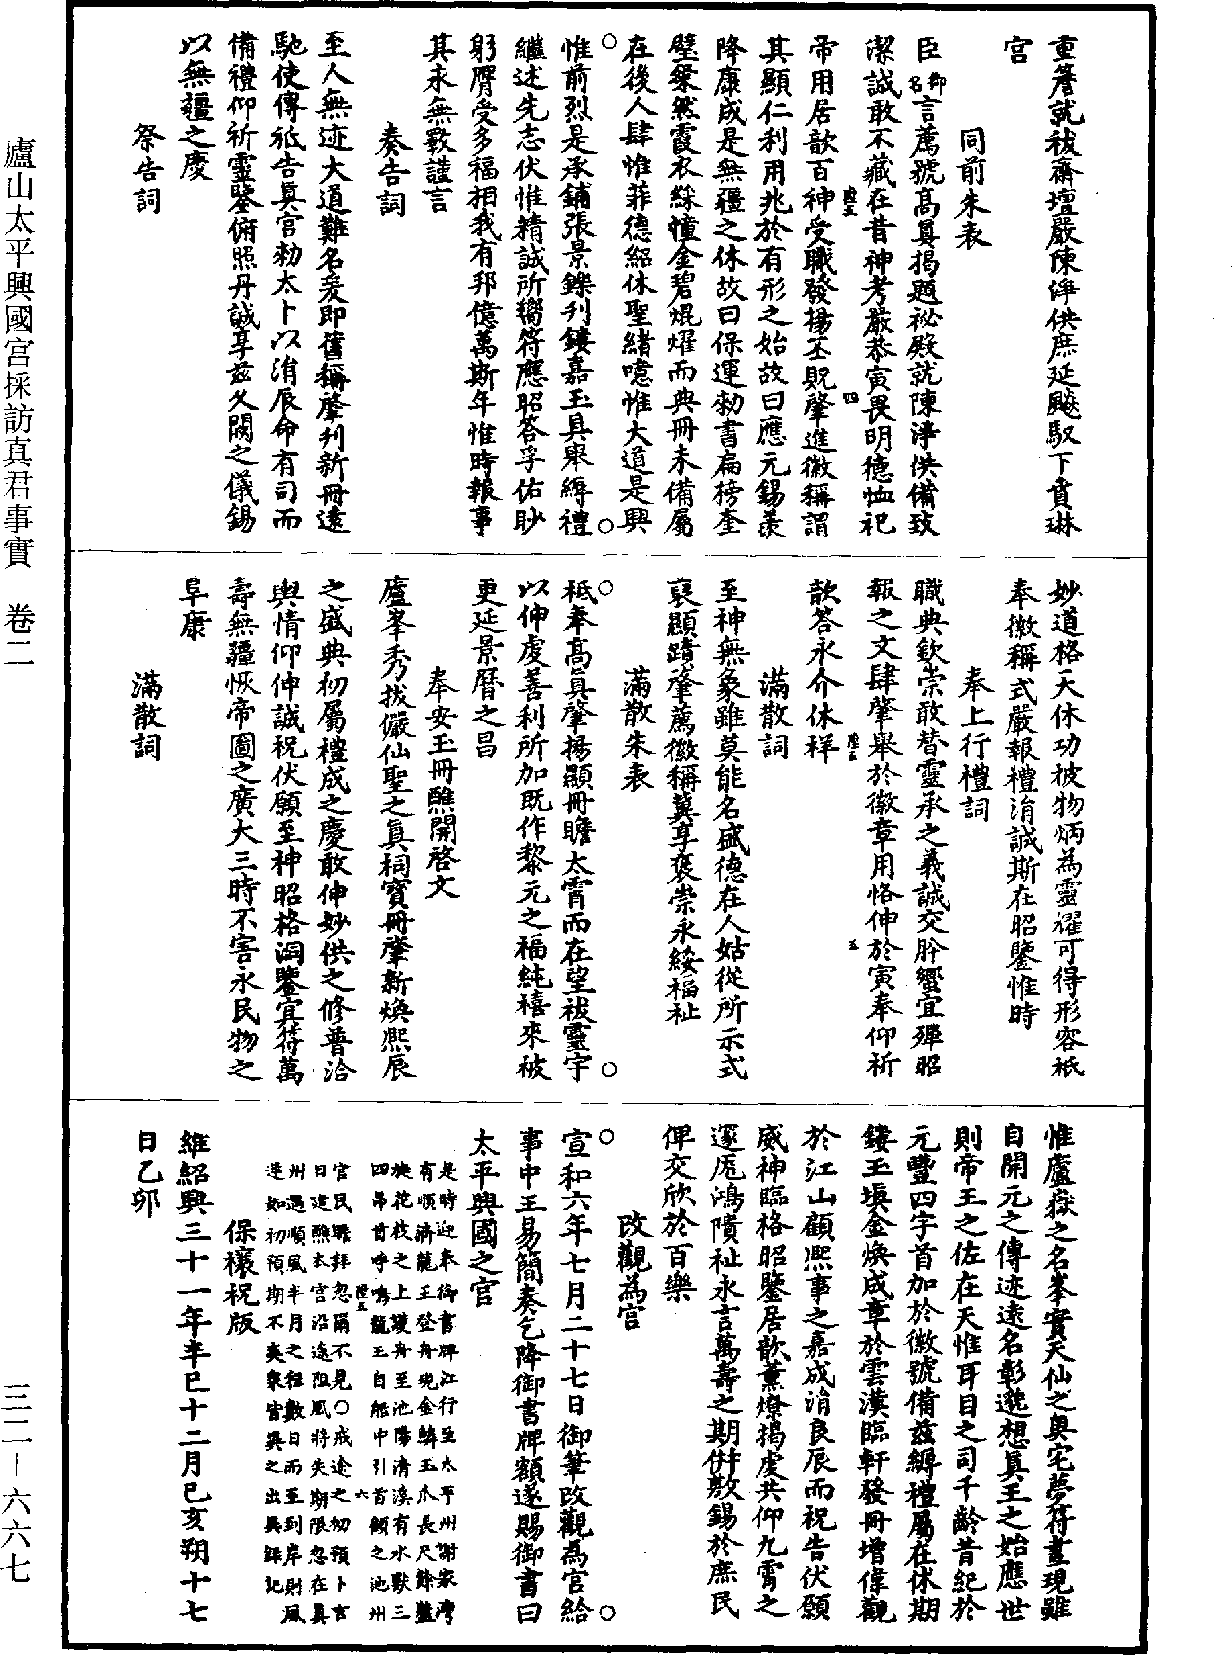 重簷就祓齋壇嚴陳淨供庶延飈馭下賁琳
宮
同前朱表
臣御名言薦號高真揭題祕殿就陳淨供備致
潔誠敢不藏在昔神考嚴恭寅畏明德恤祀
帝用居歆百神受職發揚丕貺肇進徽稱謂
其顯仁利用兆於有形之始故曰應元錫羨
降康成是無疆之休故曰保運勑書扁榜奎
壁粲然霞衣綵幢金碧焜燿而典冊未備屬
在後人肆惟菲德紹休聖緒噫惟大道是興
惟前烈是承鋪張景鑠刋鏤嘉玉具舉縟禮
繼述先志伏惟精誠所嚮符應昭答孚佑眇
躬膺受多福相我有邦億萬斯年惟時報事
其永無斁謹言
奏告詞
至人無迹大道難名爰即舊稱肇刋新冊遠
馳使傳祗告真宮勑太卜以涓辰命有司而
備禮仰祈靈鑒俯照丹誠享茲久闕之儀錫
以無疆之慶
祭告詞
妙道格天休功被物炳為靈燿可得形容祗
奉徽稱式嚴報禮涓誠斯在昭鑒惟時
奉上行禮詞
職典欽崇敢替靈承之義誠交肸蠁宜殫昭
報之文肆肇舉於徽章用恪伸於寅奉仰祈
歆答永介休祥
滿散詞
至神無象雖莫能名盛德在人姑從所示式
裒顯蹟肇薦徽稱冀享褒崇永綏福祉
滿散朱表
祗奉高真肇揚顯冊瞻太霄而在望祓靈宇
以伸虔善利所加既作黎元之福純禧來被
更延景曆之昌
奉安玉冊醮開啓文
廬峯秀拔儼仙聖之真祠寶冊肇新煥熙辰
之盛典初屬禮成之慶敢伸妙供之修普洽
輿情仰伸誠祝伏願至神昭格洞鑒宜符萬
壽無疆恢帝圖之廣大三時不害永民物之
阜康
滿散詞
惟廬嶽之名峯實天仙之奧宅夢符晝現雖
自開元之傳迹遠名彰邈想真王之始應世
則帝王之佐在天惟耳目之司千齡昔紀於
元豐四字首加於徽號備茲縟禮屬在休期
鏤玉填金煥成章於雲漢臨軒發冊增偉觀
於江山顧熙事之嘉成涓良辰而祝告伏願
威神臨格昭鑒居歆薰燎揭虔共仰九霄之
邃厖鴻隤祉永言萬壽之期併敷錫於庶民
俾交欣於百樂
改觀為宮
宣和六年七月二十七日御筆改觀為宮給
事中王易簡奏乞降御書牌額遂賜御書曰
太平興國之宮
是時迎奉御書牌江行至太平州謝家灣
有順濟龍王登舟現金鱗玉爪長尺餘盤
旋花枝之上護舟至池陽清溪有水獸三
四昂首呼鳴龍王自舩中引首顧之池州
官民瞻拜忽爾不見○戒途之初預卜吉
日建醮本宮沿途阻風將失期限忽在真
州遇順風半月之程數日而至到岸財風
逆如初預期不爽衆皆異之出異錄記
保禳祝版
維紹興三十一年辛巳十二月己亥朔十七
日乙卯
廬山太平興國宮採訪真君事實 卷二
三二－六六七